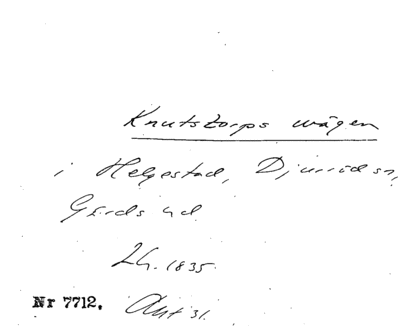 Knutstorps vägen
i Helgestad, Djurröd sn,
Gärds hd.
Lh. 1835.
Nr 7712. Akt 31.